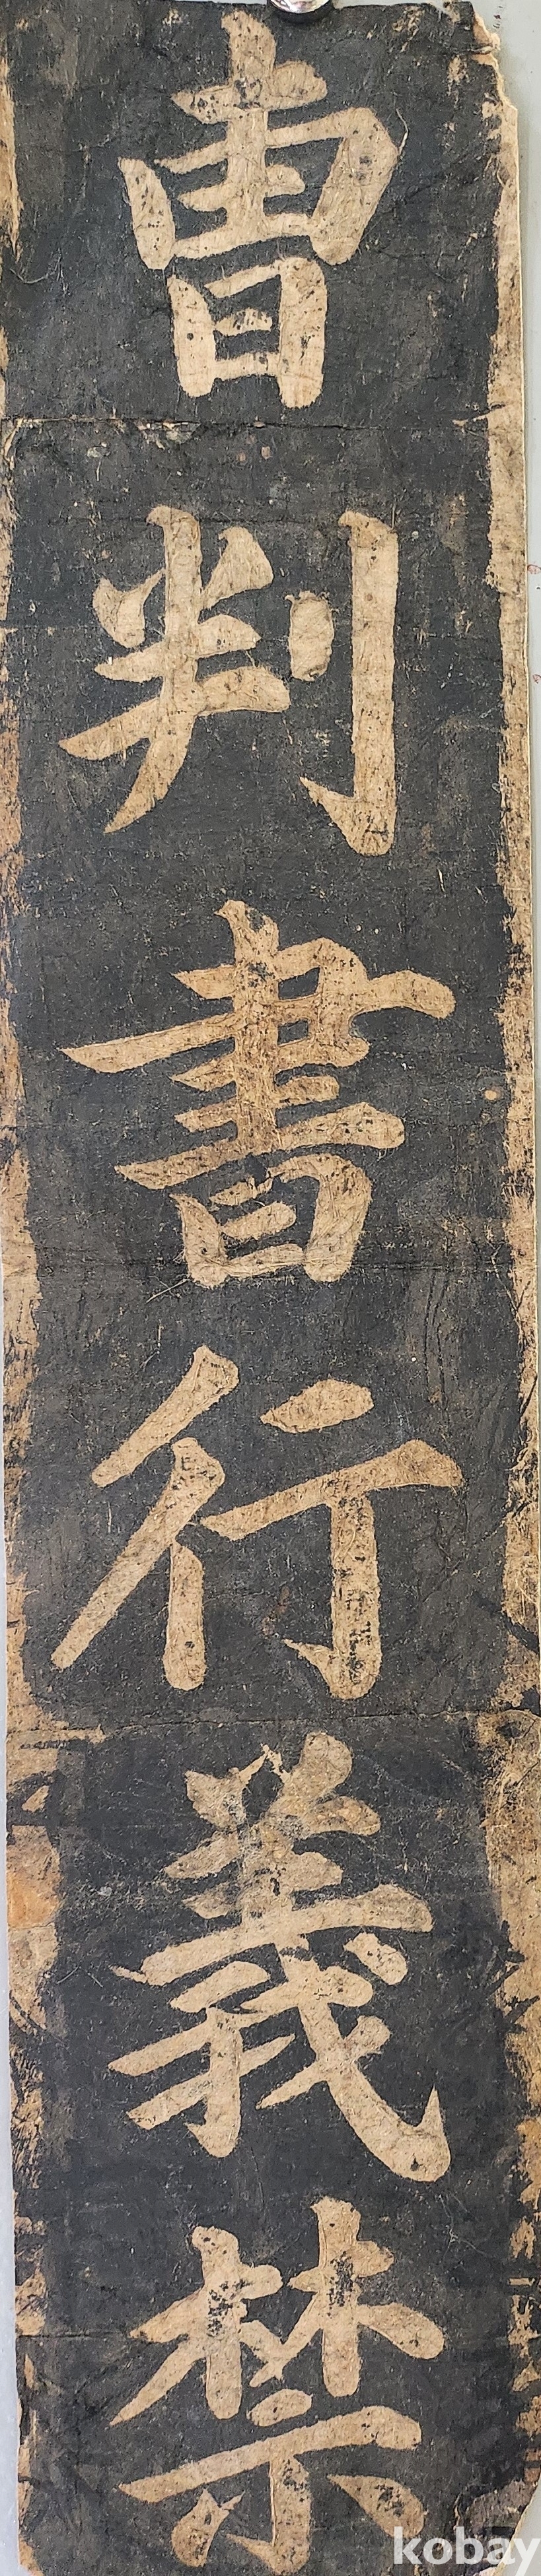 曺判書行義禁
kobay